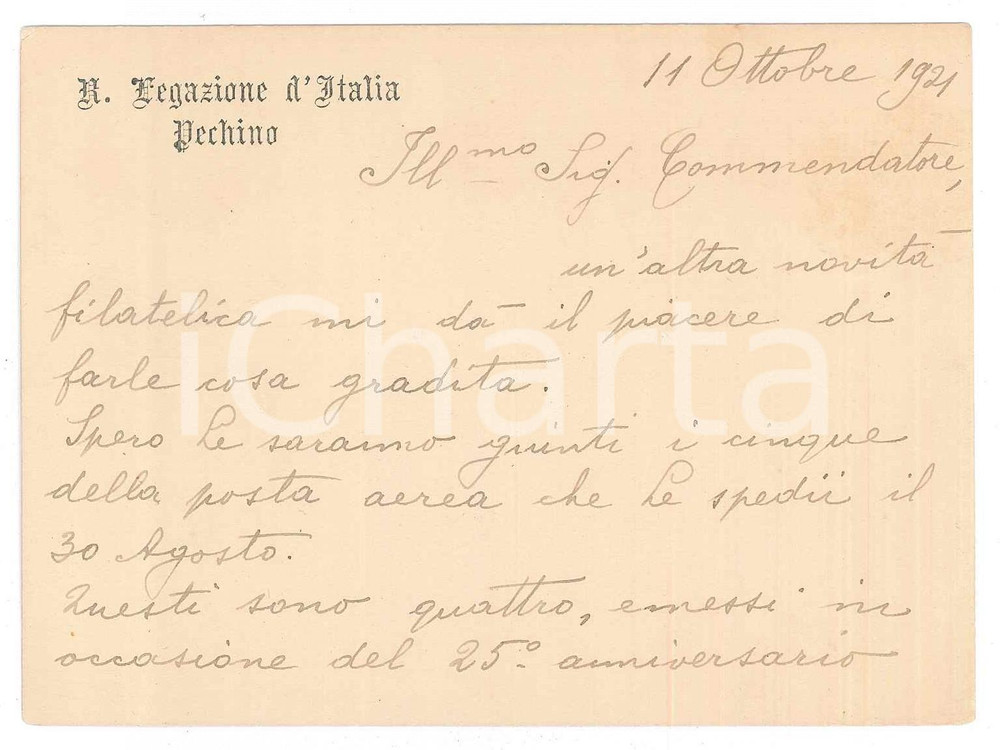 11 Ottobre 1921
R. Legazione d'Italia
Pechino
Ill.mo Sig. Commendatore,
un'altra novità
filatelica mi dà il piacere di
farle cosa gradita.
Spero Le saranno giunti i cinque
della posta aerea che Le spedii il
30 Agosto.
Questi sono quattro, emessi in
occasione del 25.° anniversario
iCharta